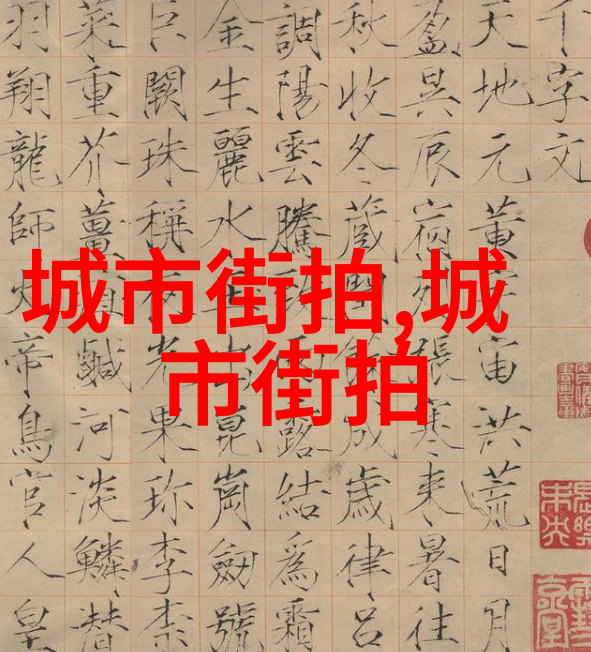 千字文
天地元黄宇宙洪荒日月
盈昃辰宿列張寒来暑往
秋收冬蔵閏餘成歲律呂
調陽雲騰致雨露結為霜
金生麗水玉出崑崗劒號
巨闕珠稱夜光果珍李柰
菜重芥薑海鹹河淡鱗潜
羽翔龍師火帝鳥官人皇
城市街拍,城
市街拍